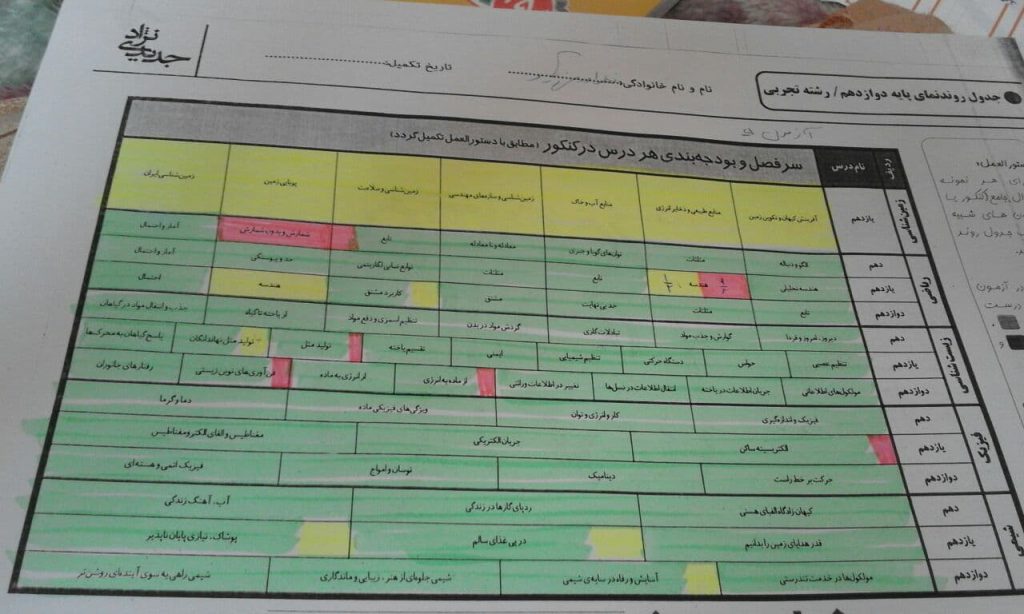 جدیدی نژاد
تاریخ تکمیل:
نام و نام خانوادگی:
جدول روندنمای پایه دوازدهم / رشته تجربی
آزمون
ستورالعمل:
ردیف نام درس سرفصل و بودجه‌بندی هر درس در کنکور (مطابق با دستورالعمل تکمیل گردد)
زمین‌شناسی یازدهم آفرینش کیهان و تکوین زمین منابع طبیعی و ذخایر انرژی منابع آب و خاک زمین‌شناسی و سازه‌های مهندسی زمین‌شناسی و سلامت پویایی زمین زمین‌شناسی ایران
ریاضی دهم الگو و دنباله مثلثات توان‌های گویا و عبارت‌های جبری معادله و نامعادله تابع شمارش و بدون شمارش آمار و احتمال
یازدهم هندسه تحلیلی هندسه تابع مثلثات توابع نمایی لگاریتمی حد و پیوستگی آمار و احتمال
دوازدهم تابع مثلثات حد بی نهایت مشتق کاربرد مشتق هندسه احتمال
زیست‌شناسی دهم دیروز، امروز و فردا گوارش و جذب مواد تبادلات گازی گردش مواد در بدن تنظیم اسمزی و دفع مواد از یاخته تا گیاه جذب و انتقال مواد در گیاهان
یازدهم تنظیم عصبی حواس دستگاه حرکتی تنظیم شیمیایی ایمنی تقسیم یاخته تولید مثل تولید مثل نهاندانگان پاسخ گیاهان به محرک‌ها
دوازدهم مولکول‌های اطلاعاتی جریان اطلاعات در یاخته انتقال اطلاعات در نسل‌ها تغییر در اطلاعات وراثتی از ماده به انرژی از انرژی به ماده فن‌آوری‌های نوین زیستی رفتارهای جانوران
فیزیک دهم فیزیک و اندازه‌گیری کار و انرژی و توان ویژگی‌های فیزیکی ماده دما و گرما
یازدهم الکتریسیته ساکن جریان الکتریکی مغناطیس و القای الکترومغناطیس
دوازدهم حرکت بر خط راست دینامیک نوسان و امواج فیزیک اتمی و هسته‌ای
شیمی دهم کیهان زادگاه الفبای هستی ردپای گازها در زندگی آب، آهنگ زندگی
یازدهم قدر هدایای زمین را بدانیم در پی غذای سالم پوشاک، نیازی پایان ناپذیر
دوازدهم مولکول‌ها در خدمت تندرستی آسایش و رفاه در سایه‌ی شیمی شیمی جلوه‌ای از هنر، زیبایی و ماندگاری شیمی راهی به سوی آینده‌ای روشن‌تر